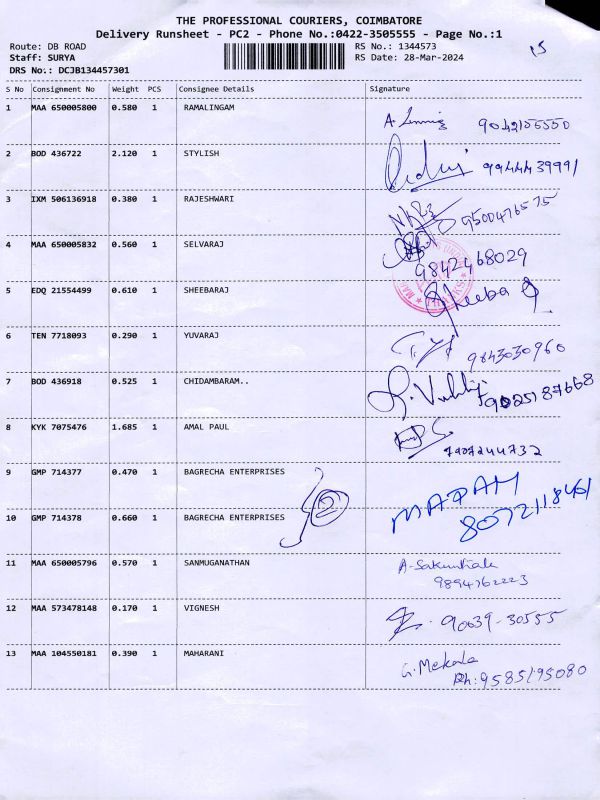 THE PROFESSIONAL COURIERS, COIMBATORE
Delivery Runsheet - PC2 - Phone No.:0422-3505555 - Page No.:1
Route: DB ROAD RS No.: 1344573 15
Staff: SURYA RS Date: 28-Mar-2024
DRS No.: DCJB134457301
S No Consignment No Weight PCS Consignee Details Signature
1 MAA 650005800 0.580 1 RAMALINGAM
2 BOD 436722 2.120 1 STYLISH 9944439991
3 IXM 506136918 0.380 1 RAJESHWARI 9500476575
4 MAA 650005832 0.560 1 SELVARAJ 9842468029
5 EDQ 21554499 0.610 1 SHEEBARAJ Sheeba
6 TEN 7718093 0.290 1 YUVARAJ 9843030960
7 BOD 436918 0.525 1 CHIDAMBARAM.. 9025187668
8 KYK 7075476 1.685 1 AMAL PAUL 7907244732
9 GMP 714377 0.470 1 BAGRECHA ENTERPRISES
10 GMP 714378 0.660 1 BAGRECHA ENTERPRISES 2 8072118461
11 MAA 650005796 0.570 1 SANMUGANATHAN A-Sakunthala
9894762223
12 MAA 573478148 0.170 1 VIGNESH 90039-30555
13 MAA 104550181 0.390 1 MAHARANI G. Mekala
Ph: 9585195080